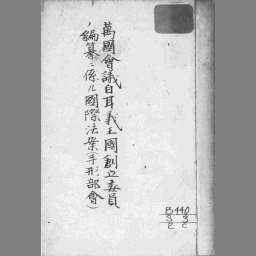 萬國會議白耳義王國創立委員
ノ編纂ニ係ル國際法案(手形部會)
B440
S 3
2 2